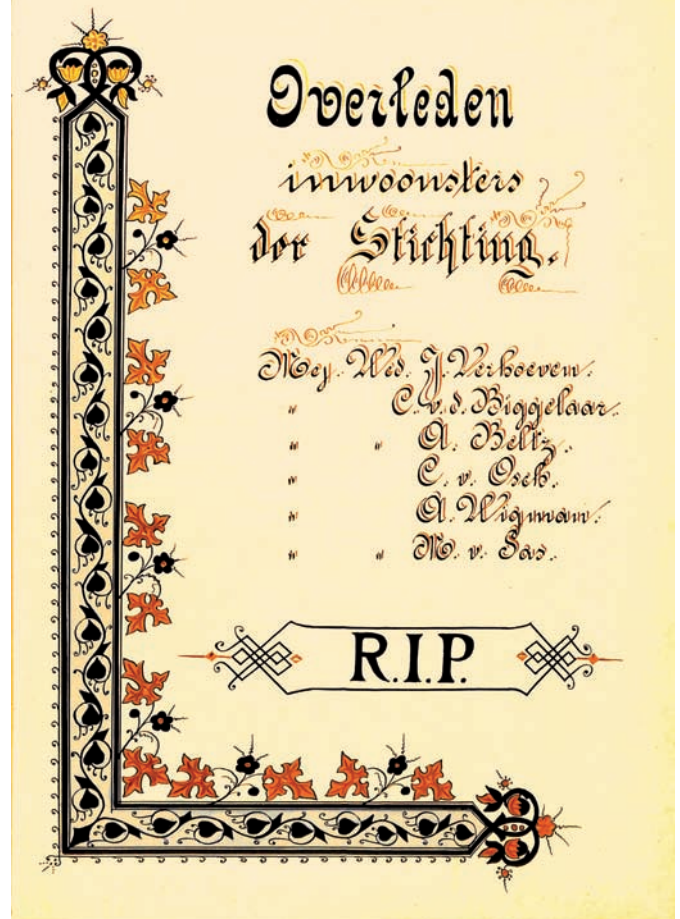 Overleden
inwoonsters
der Stichting.
Mej. Wed. J. Verhoeven.
" C. v. d. Biggelaar.
" " A. Beltz.
" C. v. Osch.
" A. Wigman.
" " M. v. Sas.
R.I.P.